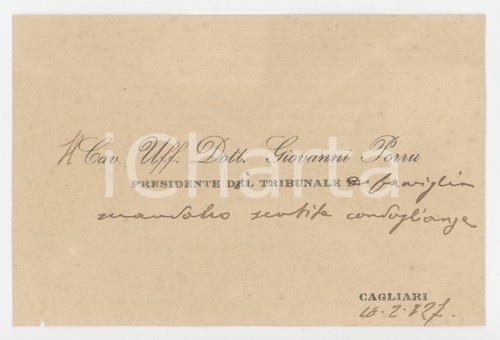 Il Cav. Uff. Dott. Giovanni Porru
PRESIDENTE DEL TRIBUNALE e famiglia
mandano sentite condoglianze
CAGLIARI
18-2-927.
iCharta